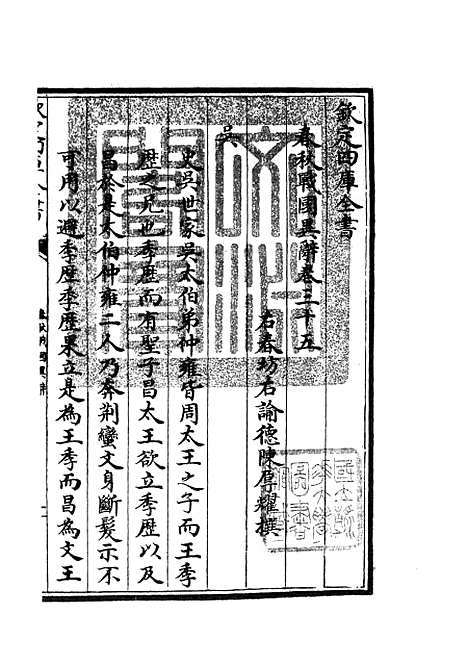 欽定四庫全書
春秋戰國異辭卷三十五
右春坊右諭德陳厚耀撰
吳
史吳世家吳太伯弟仲雍皆周太王之子而王季
歷之兄也季歷而有聖子昌太王欲立季歷以及
昌於是太伯仲雍二人乃奔荆蠻文身斷髮示不
可用以避季歷季歷果立是為王季而昌為文王